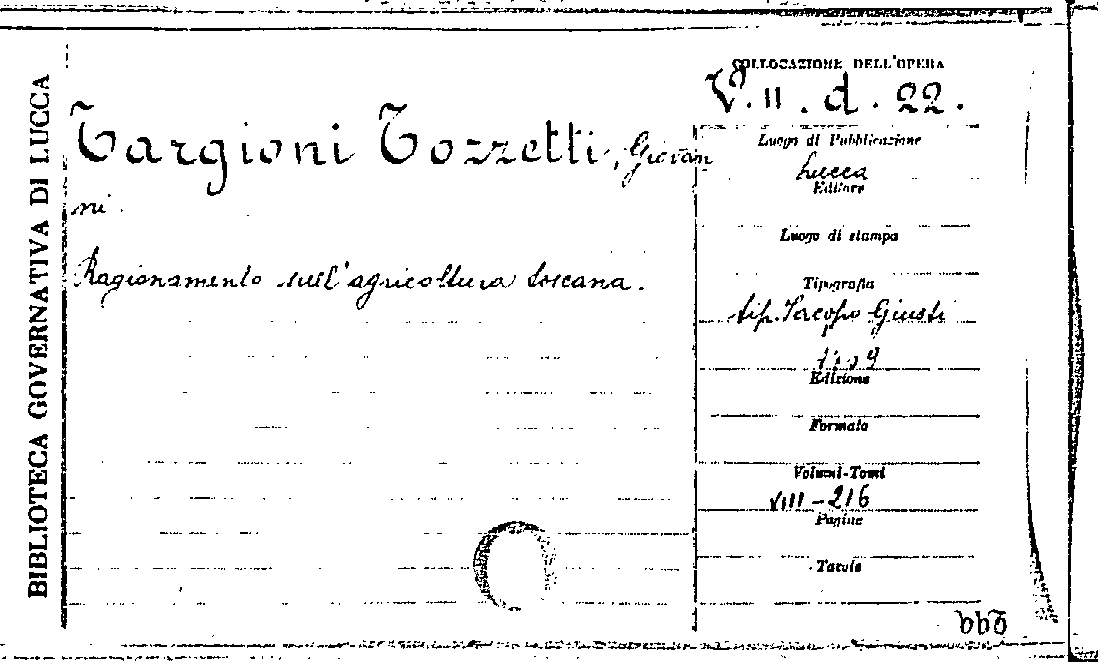 BIBLIOTECA GOVERNATIVA DI LUCCA
COLLOCAZIONE DELL'OPERA
V. II. d. 22.
Targioni Tozzetti, Giovan
ni.
Ragionamento sull'agricoltura toscana.
Luogo di Pubblicazione
Lucca
Editore
Luogo di stampa
Tipografia
tip. Jacopo Giusti
Edizione
Formato
Volumi-Tomi
VIII-216
Pagine
Tavole